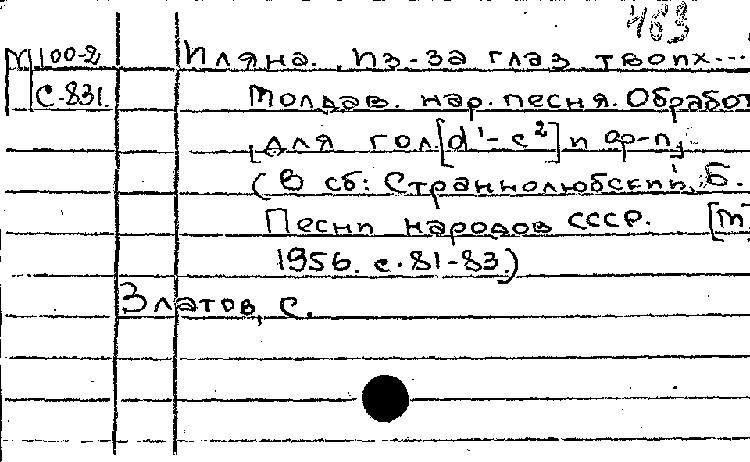 483
М 100-2 Иляна. Из-за глаз твоих...
С-831. Молдав. нар. песня. Обработ
[для гол[d¹-e²] и ф-п]
(В сб: Страннолюбский, Б.
Песни народов СССР. [М]
1956. с. 81-83.)
Златов, С.